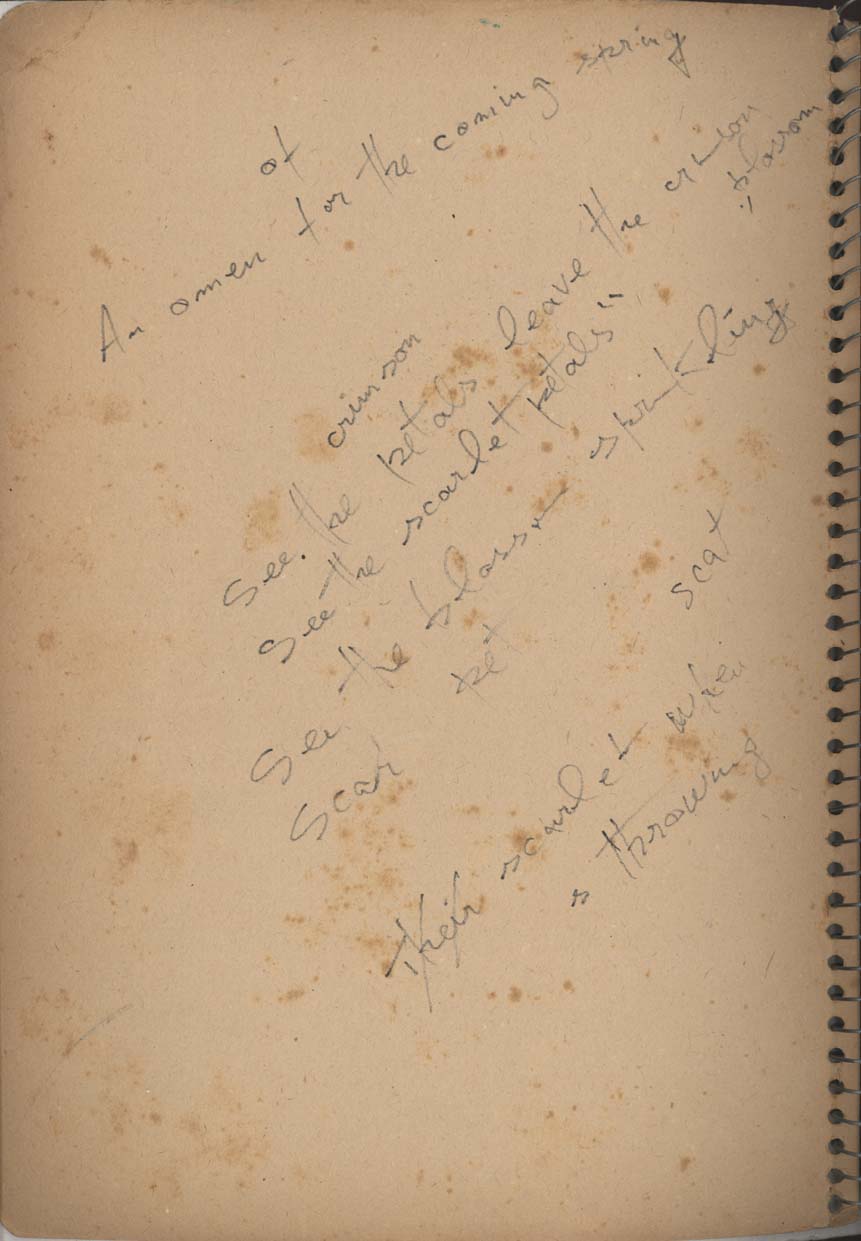 of
An omen for the coming spring
crimson
See the petals leave the crimson
blossom
See the scarlet petals
See the blossom sprinkling
Scar pet scat
Their scarlet when
s throwing